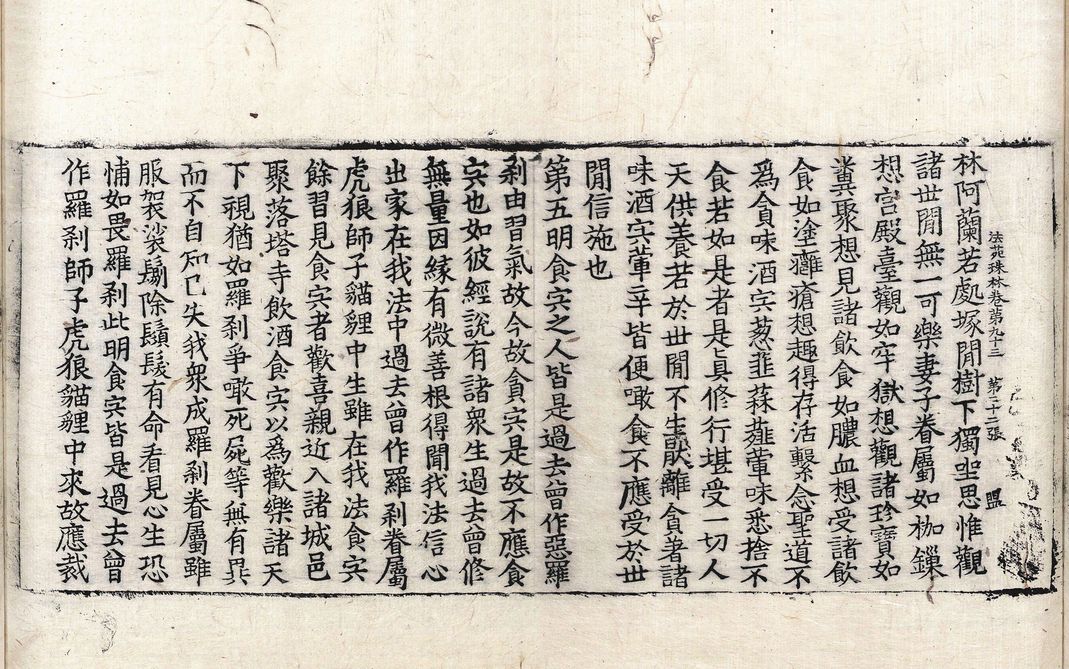 法苑珠林卷第九十三 第二十二張 盟
林阿蘭若處塚閒樹下獨坐思惟觀
諸世閒無一可樂妻子眷屬如枷鏁
想宮殿臺觀如牢獄想觀諸珍寶如
糞聚想見諸飲食如膿血想受諸飲
食如塗癰瘡想趣得存活繫念聖道不
爲貪味酒宍葱韮蒜薤葷味悉捨不
食若如是者是眞修行堪受一切人
天供養若於世閒不生猒離貪著諸
味酒宍葷辛皆便噉食不應受於世
閒信施也
第五明食宍之人皆是過去曾作惡羅
刹由習氣故今故貪宍是故不應食
宍也如彼經說有諸衆生過去曾修
無量因緣有微善根得聞我法信心
出家在我法中過去曾作羅刹眷屬
虎狼師子貓貍中生雖在我法食宍
餘習見食宍者歡喜親近入諸城邑
聚落塔寺飲酒食宍以爲歡樂諸天
下視猶如羅刹爭噉死屍等無有異
而不自知已失我衆成羅刹眷屬雖
服袈裟鬀除鬚髮有命看見心生恐
悑如畏羅刹此明食宍皆是過去曾
作羅刹師子虎狼貓貍中來故應裁